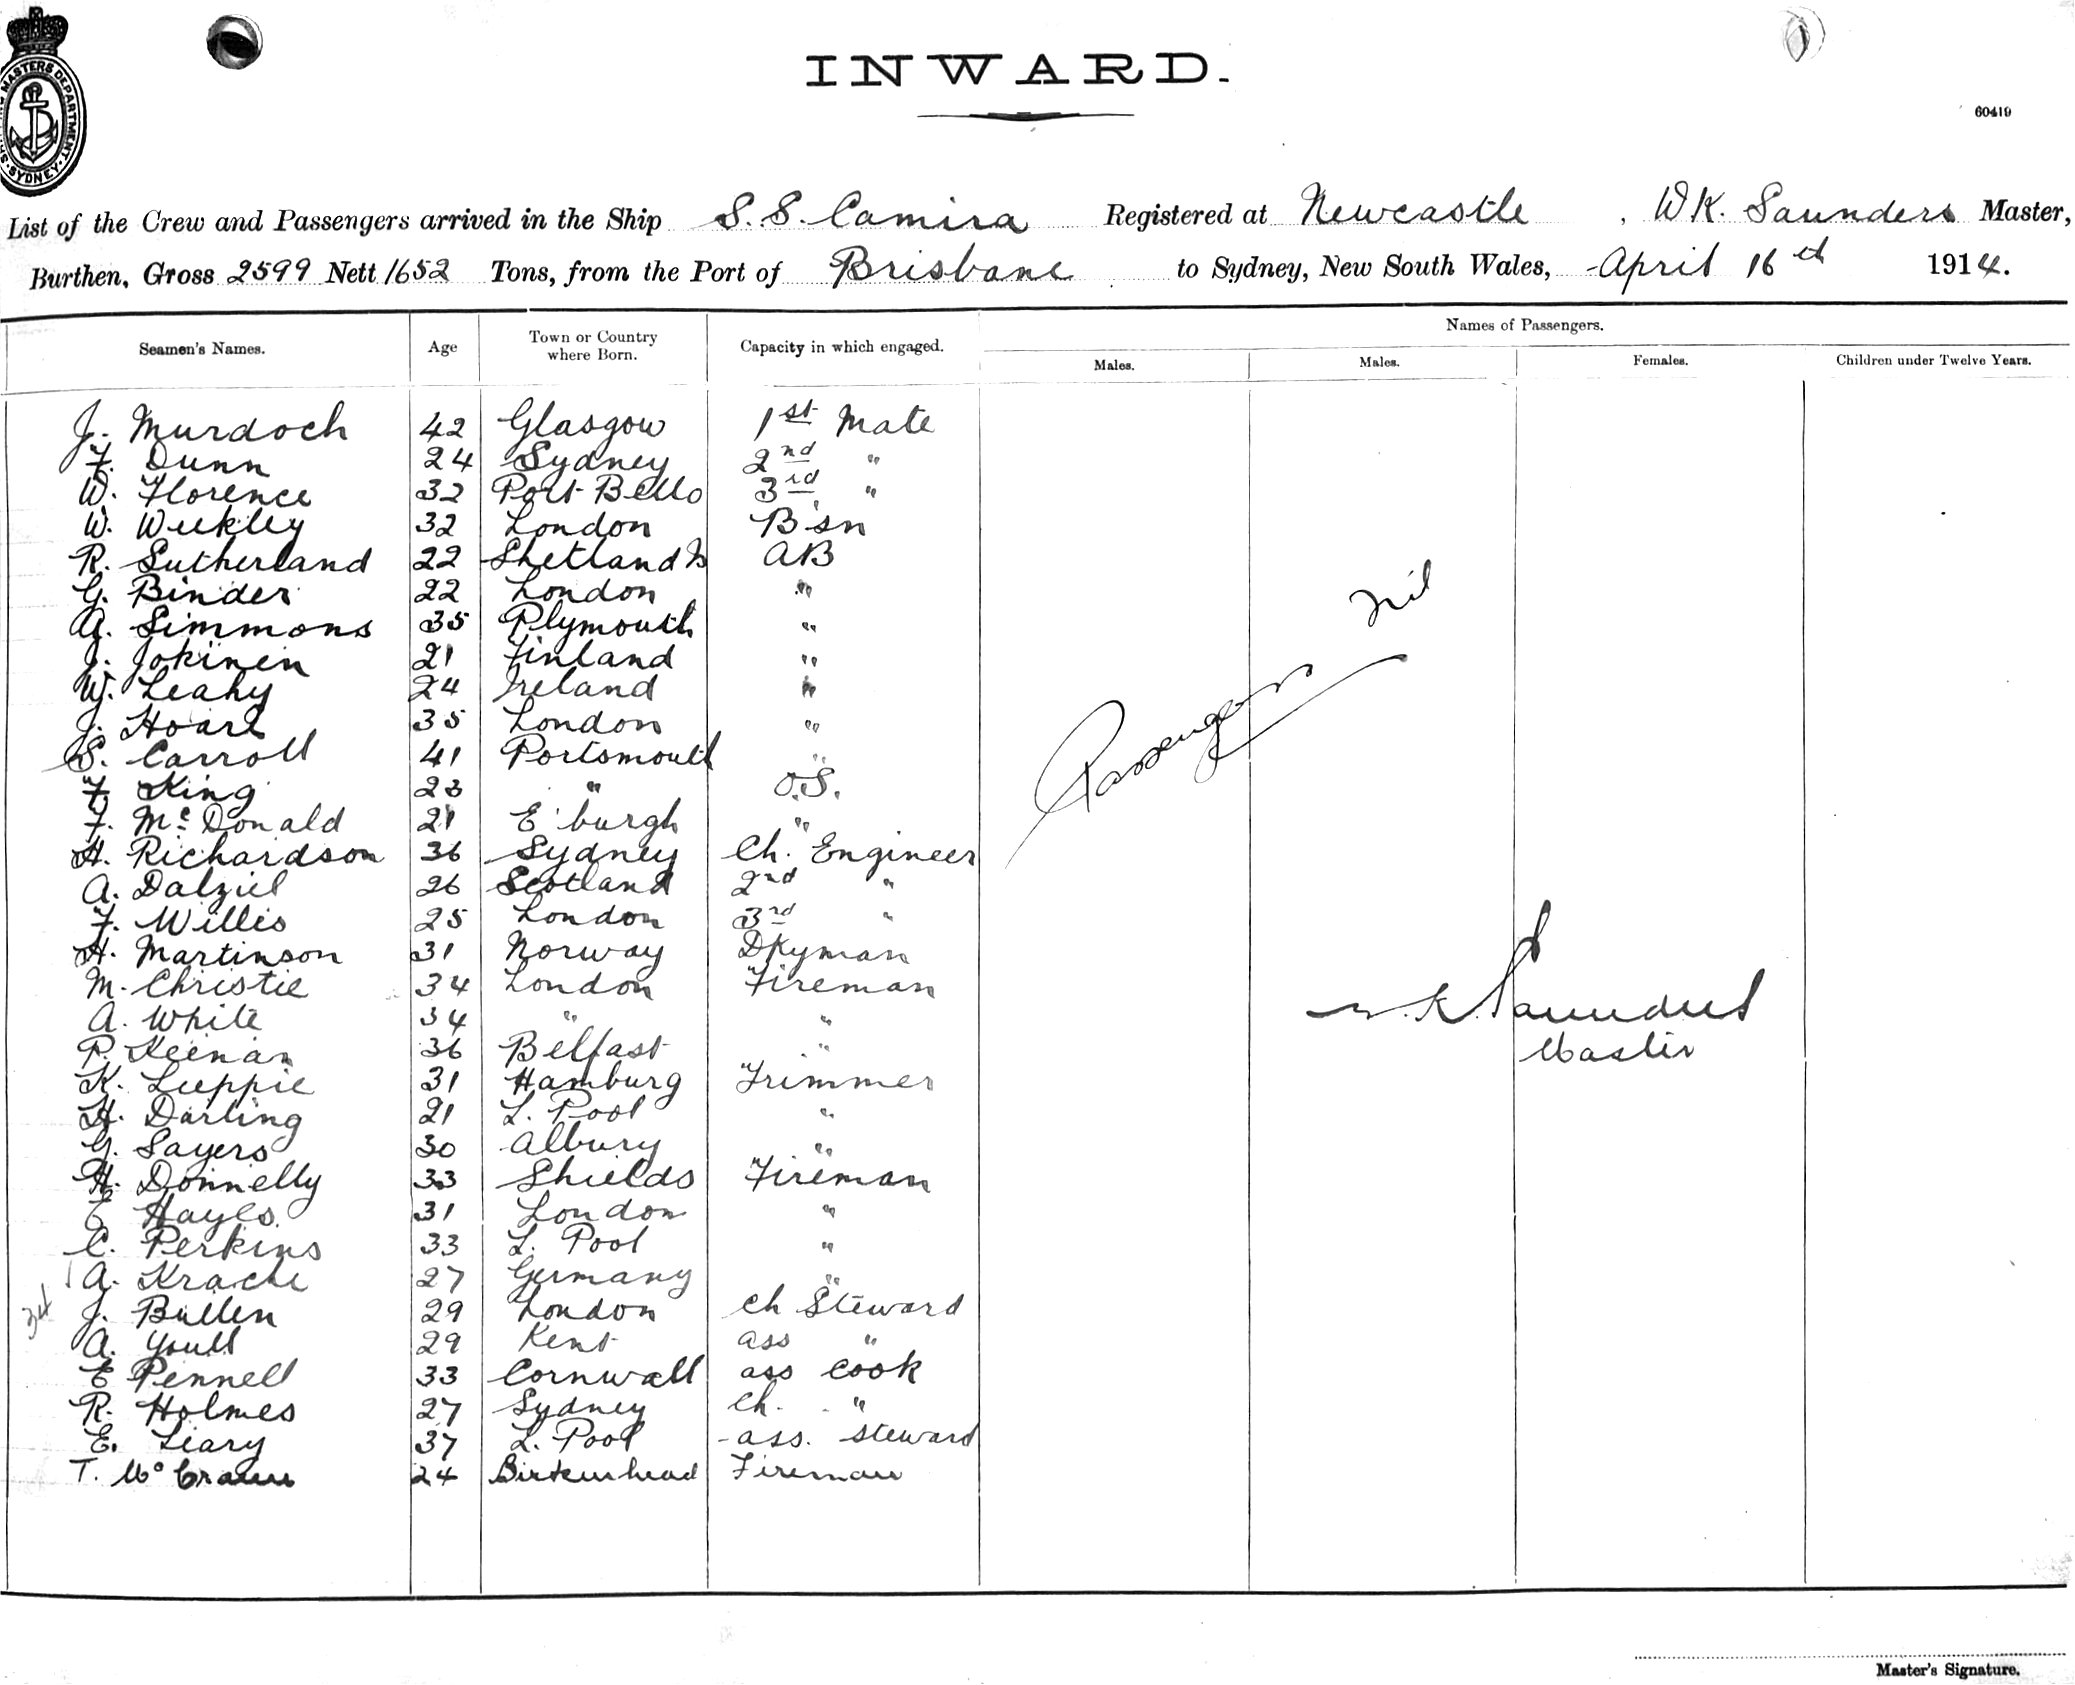 INWARD.
60419
MASTERS DEPARTMENT
SYDNEY
List of the Crew and Passengers arrived in the Ship S.S. Camira Registered at Newcastle, W K. Saunders Master,
Burthen, Gross 2599 Nett 1652 Tons, from the Port of Brisbane to Sydney, New South Wales, April 16th 1914.
Seamen's Names. Age Town or Country where Born. Capacity in which engaged. Names of Passengers.
Males. Males. Females. Children under Twelve Years.
J. Murdoch 42 Glasgow 1st Mate
F. Dunn 24 Sydney 2nd "
W. Florence 32 Port Bello 3rd "
W. Weekley 32 London B'sn
R. Sutherland 22 Shetland Is AB
G. Binder 22 London "
A. Simmons 35 Plymouth "
J. Jokinen 21 Finland "
W. Leahy 24 Ireland "
J. Hoare 35 London "
S. Carroll 41 Portsmouth "
F King 23 " O.S.
F. McDonald 21 E'burgh "
H. Richardson 36 Sydney Ch. Engineer
A. Dalziel 26 Scotland 2nd "
F. Willis 25 London 3rd "
H. Martinson 31 Norway Dkyman
M. Christie 34 London Fireman
A. White 34 " "
P. Keenan 36 Belfast "
K. Lueppie 31 Hamburg Trimmer
H. Darling 21 L. Pool "
G. Sayers 30 Albury "
H. Donnelly 33 Shields Fireman
E Hayes. 31 London "
C. Perkins 33 L. Pool "
A. Krache 27 Germany "
J. Bullen 29 London Ch Steward
A. Youll 29 Kent ass "
E Pennell 33 Cornwall ass Cook
R. Holmes 27 Sydney Ch. "
E. Leary 37 L. Pool ass. Steward
T. Mc 24 Birkenhead Fireman
34
Passengers Nil
W. K. Saunders
Master
Master's Signature.